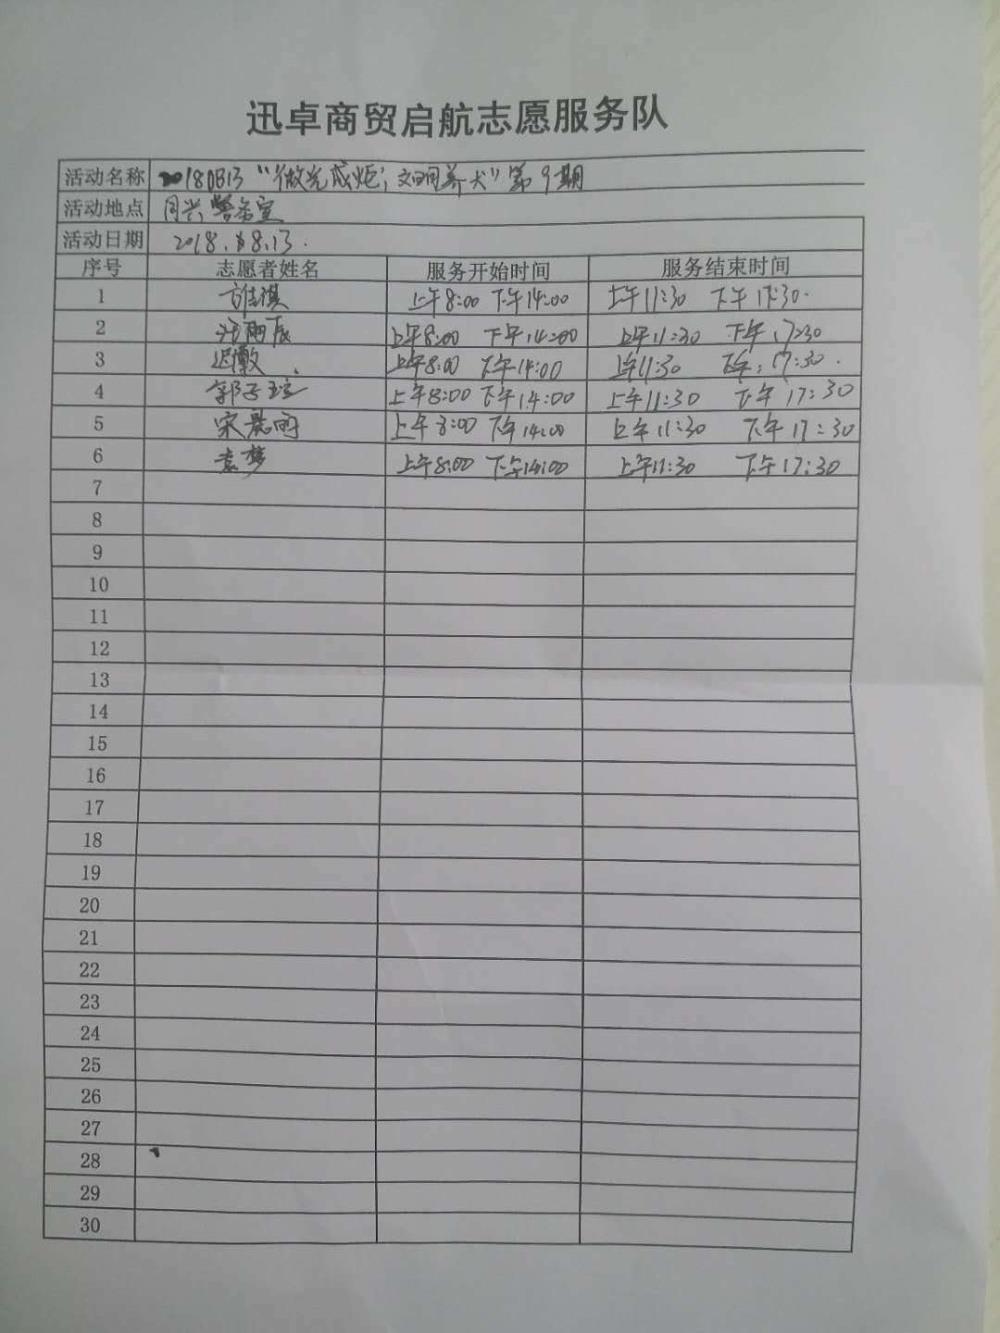 迅卓商贸启航志愿服务队
活动名称 20180813 "微光成炬，文明养犬" 第9期
活动地点 同兴警务室
活动日期 2018.8.13.
序号 志愿者姓名 服务开始时间 服务结束时间
1 上午8:00 下午14:00 上午11:30 下午17:30.
2 上午8:00 下午14:00 上午11:30 下午17:30
3 上午8:00 下午14:00 上午11:30 下午:17:30.
4 郭子 上午8:00 下午14:00 上午11:30 下午17:30
5 宋晨雨 上午8:00 下午14:00 上午11:30 下午17:30
6 袁梦 上午8:00 下午14:00 上午11:30 下午17:30
7
8
9
10
11
12
13
14
15
16
17
18
19
20
21
22
23
24
25
26
27
28
29
30